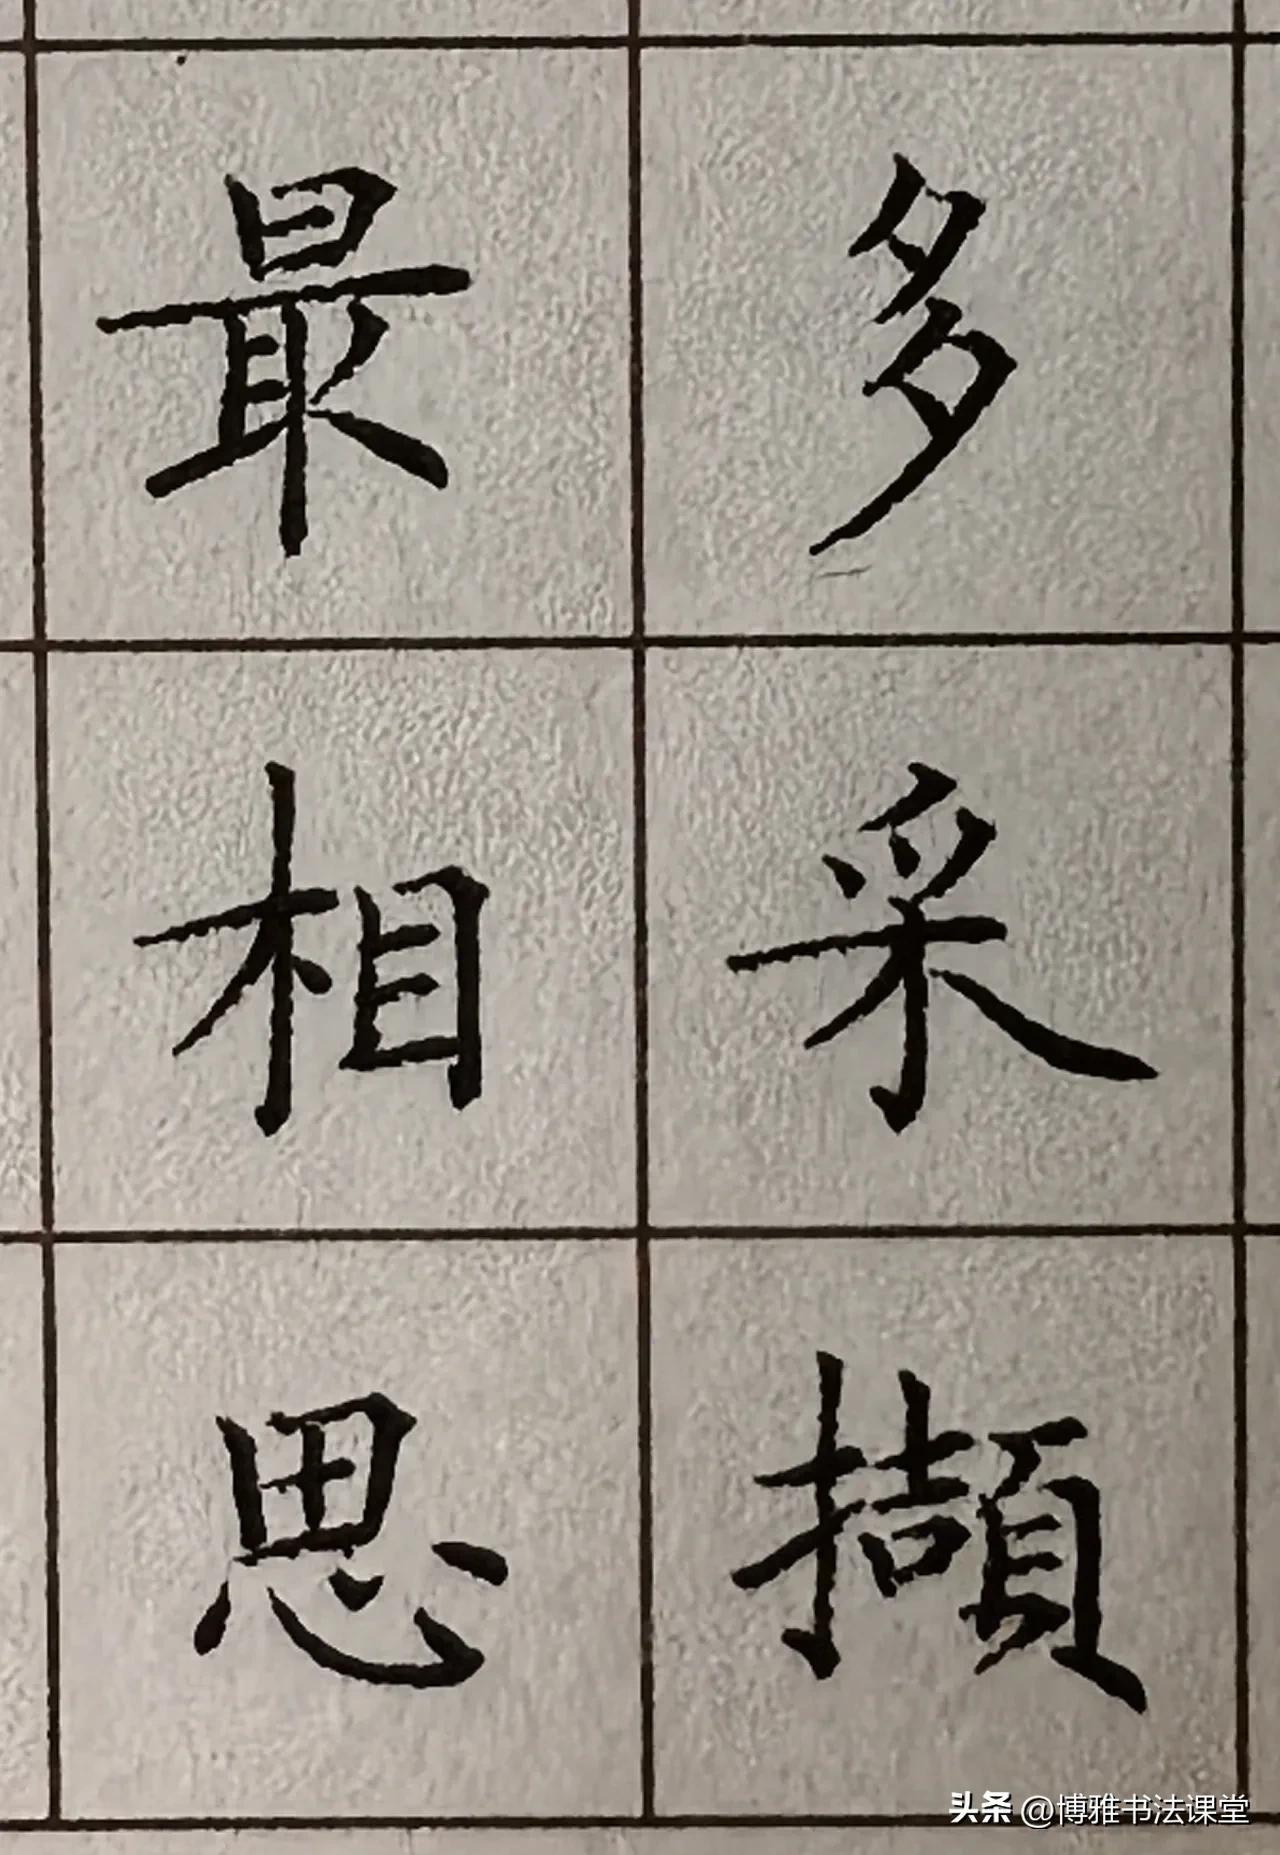 多采擷
最相思
头条 @博雅书法课堂